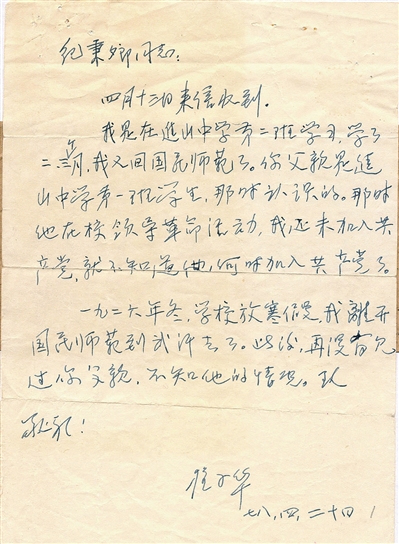 纪秉卿同志:
四月十三日来信收到。
我是在进山中学第二班学习,学了
二、三年,我又回国民师范了。你父亲是进
山中学第一班学生,那时认识的。那时
他在校领导革命活动,我还未加入共
产党,就不知道他何时加入共产党了。
一九二六年冬,学校放寒假处,我离开
国民师范到武汉去了。此后,再没有见
过你父亲,不知他的情况。致
敬礼!
华
七八,四,二十日